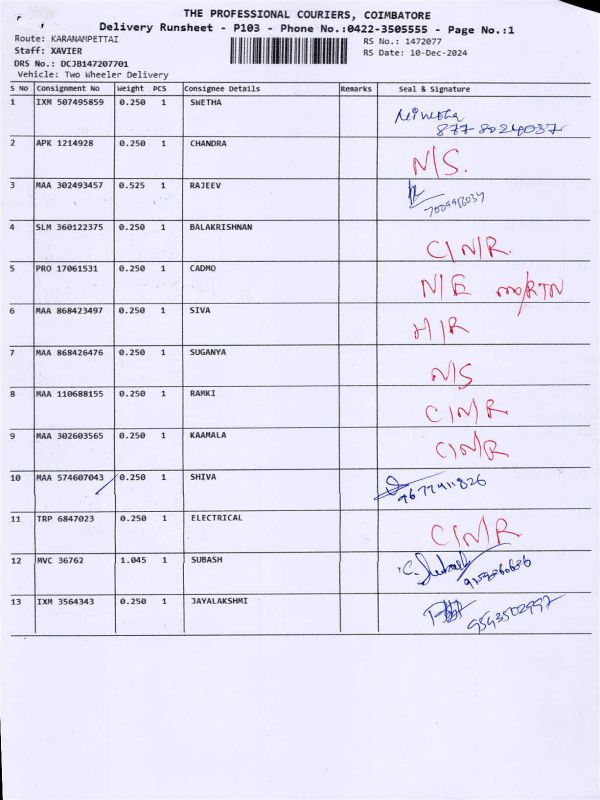 THE PROFESSIONAL COURIERS, COIMBATORE
Delivery Runsheet - P103 - Phone No.:0422-3505555 - Page No.:1
Route: KARANAMPETTAI RS No.: 1472077
Staff: XAVIER RS Date: 10-Dec-2024
DRS No.: DCJB147207701
Vehicle: Two Wheeler Delivery
S No Consignment No Weight PCS Consignee Details Remarks Seal & Signature
1 IXM 507495859 0.250 1 SWETHA
8778024037
2 APK 1214928 0.250 1 CHANDRA N/S.
3 MAA 302493457 0.525 1 RAJEEV
4 SLM 360122375 0.250 1 BALAKRISHNAN C/N/R.
5 PRO 17061531 0.250 1 CADMO N/E
6 MAA 868423497 0.250 1 SIVA H/R
7 MAA 868426476 0.250 1 SUGANYA N/S
8 MAA 110688155 0.250 1 RAMKI C/N/R
9 MAA 302603565 0.250 1 KAAMALA C/N/R
10 MAA 574607043 0.250 1 SHIVA
11 TRP 6847023 0.250 1 ELECTRICAL C/N/R
12 MVC 36762 1.045 1 SUBASH
13 IXM 3564343 0.250 1 JAYALAKSHMI